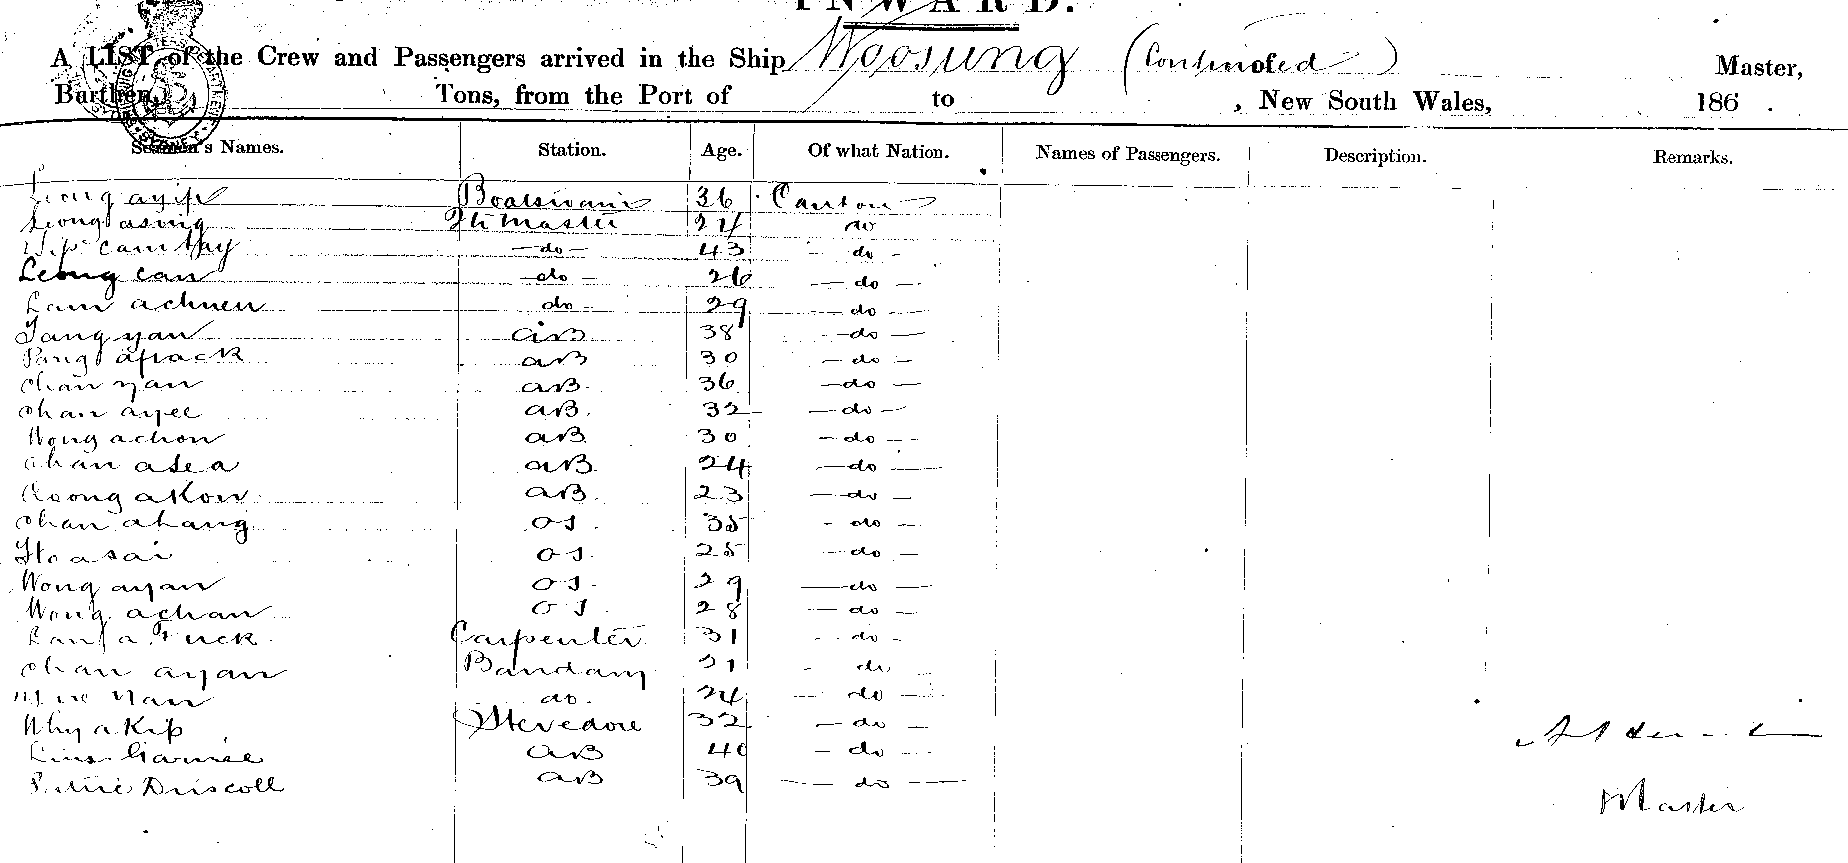 INWARD.
A LIST of the Crew and Passengers arrived in the Ship Woosung (Continued) Master,
Burthen, Tons, from the Port of to , New South Wales, 186 .
Seamen's Names. Station. Age. Of what Nation. Names of Passengers. Description. Remarks.
Leong ayip Boatswain 36 Canton
Leong asing Qtr master 24 do
cam hay do 43 do
Leong can do 26 do
Lam achuen do 29 do
Tang yan AB 38 do
Pang apack AB 30 do
Chan yan AB 36 do
Chan ayee AB. 32 do
Wong achon AB 30 do
Chan asea AB. 24 do
akow AB. 23 do
Chan ahang OS. 35 do
Ho asai OS. 25 do
Wong ayan OS. 29 do
Wong achan OS 28 do
a Tuck Carpenter 31 do
Chan ayan 21 do
Yan do. 24 do
Why a Kip Stevedore 32 do
AB 40 do
Driscoll AB 39 do
Master